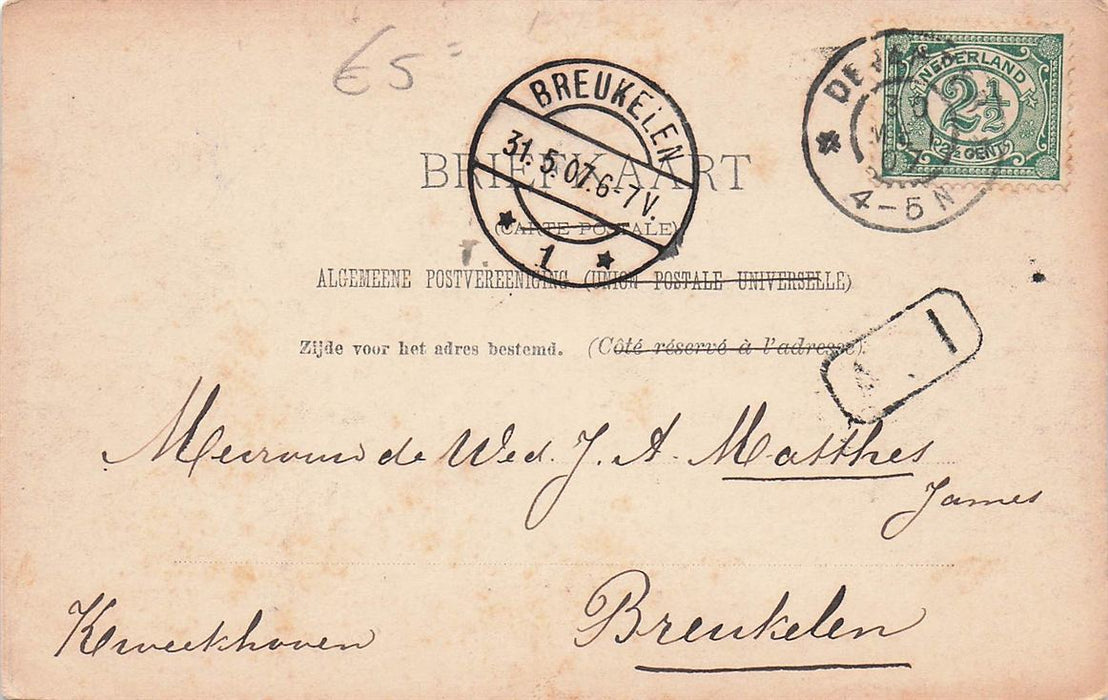 €5=
BREUKELEN
31.5.07.6-7V.
1
NEDERLAND
2½
2½ CENT
4-5N
BRIEFKAART
(CARTE POSTALE)
ALGEMEENE POSTVEREENIGING (UNION POSTALE UNIVERSELLE)
Zijde voor het adres bestemd. (Côté réservé à l'adresse).
1
Mevrouw de Wed. J. A. Matthes
James
Kweekhoven
Breukelen